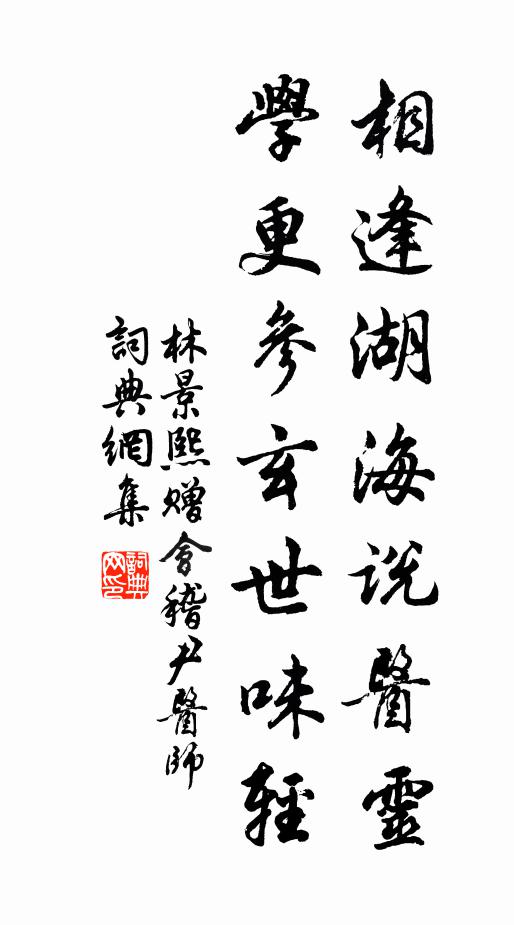 相逢湖海說醫靈
學更參玄世味輕
林景熙贈會稽尹醫師
詞典網集
詞典网印